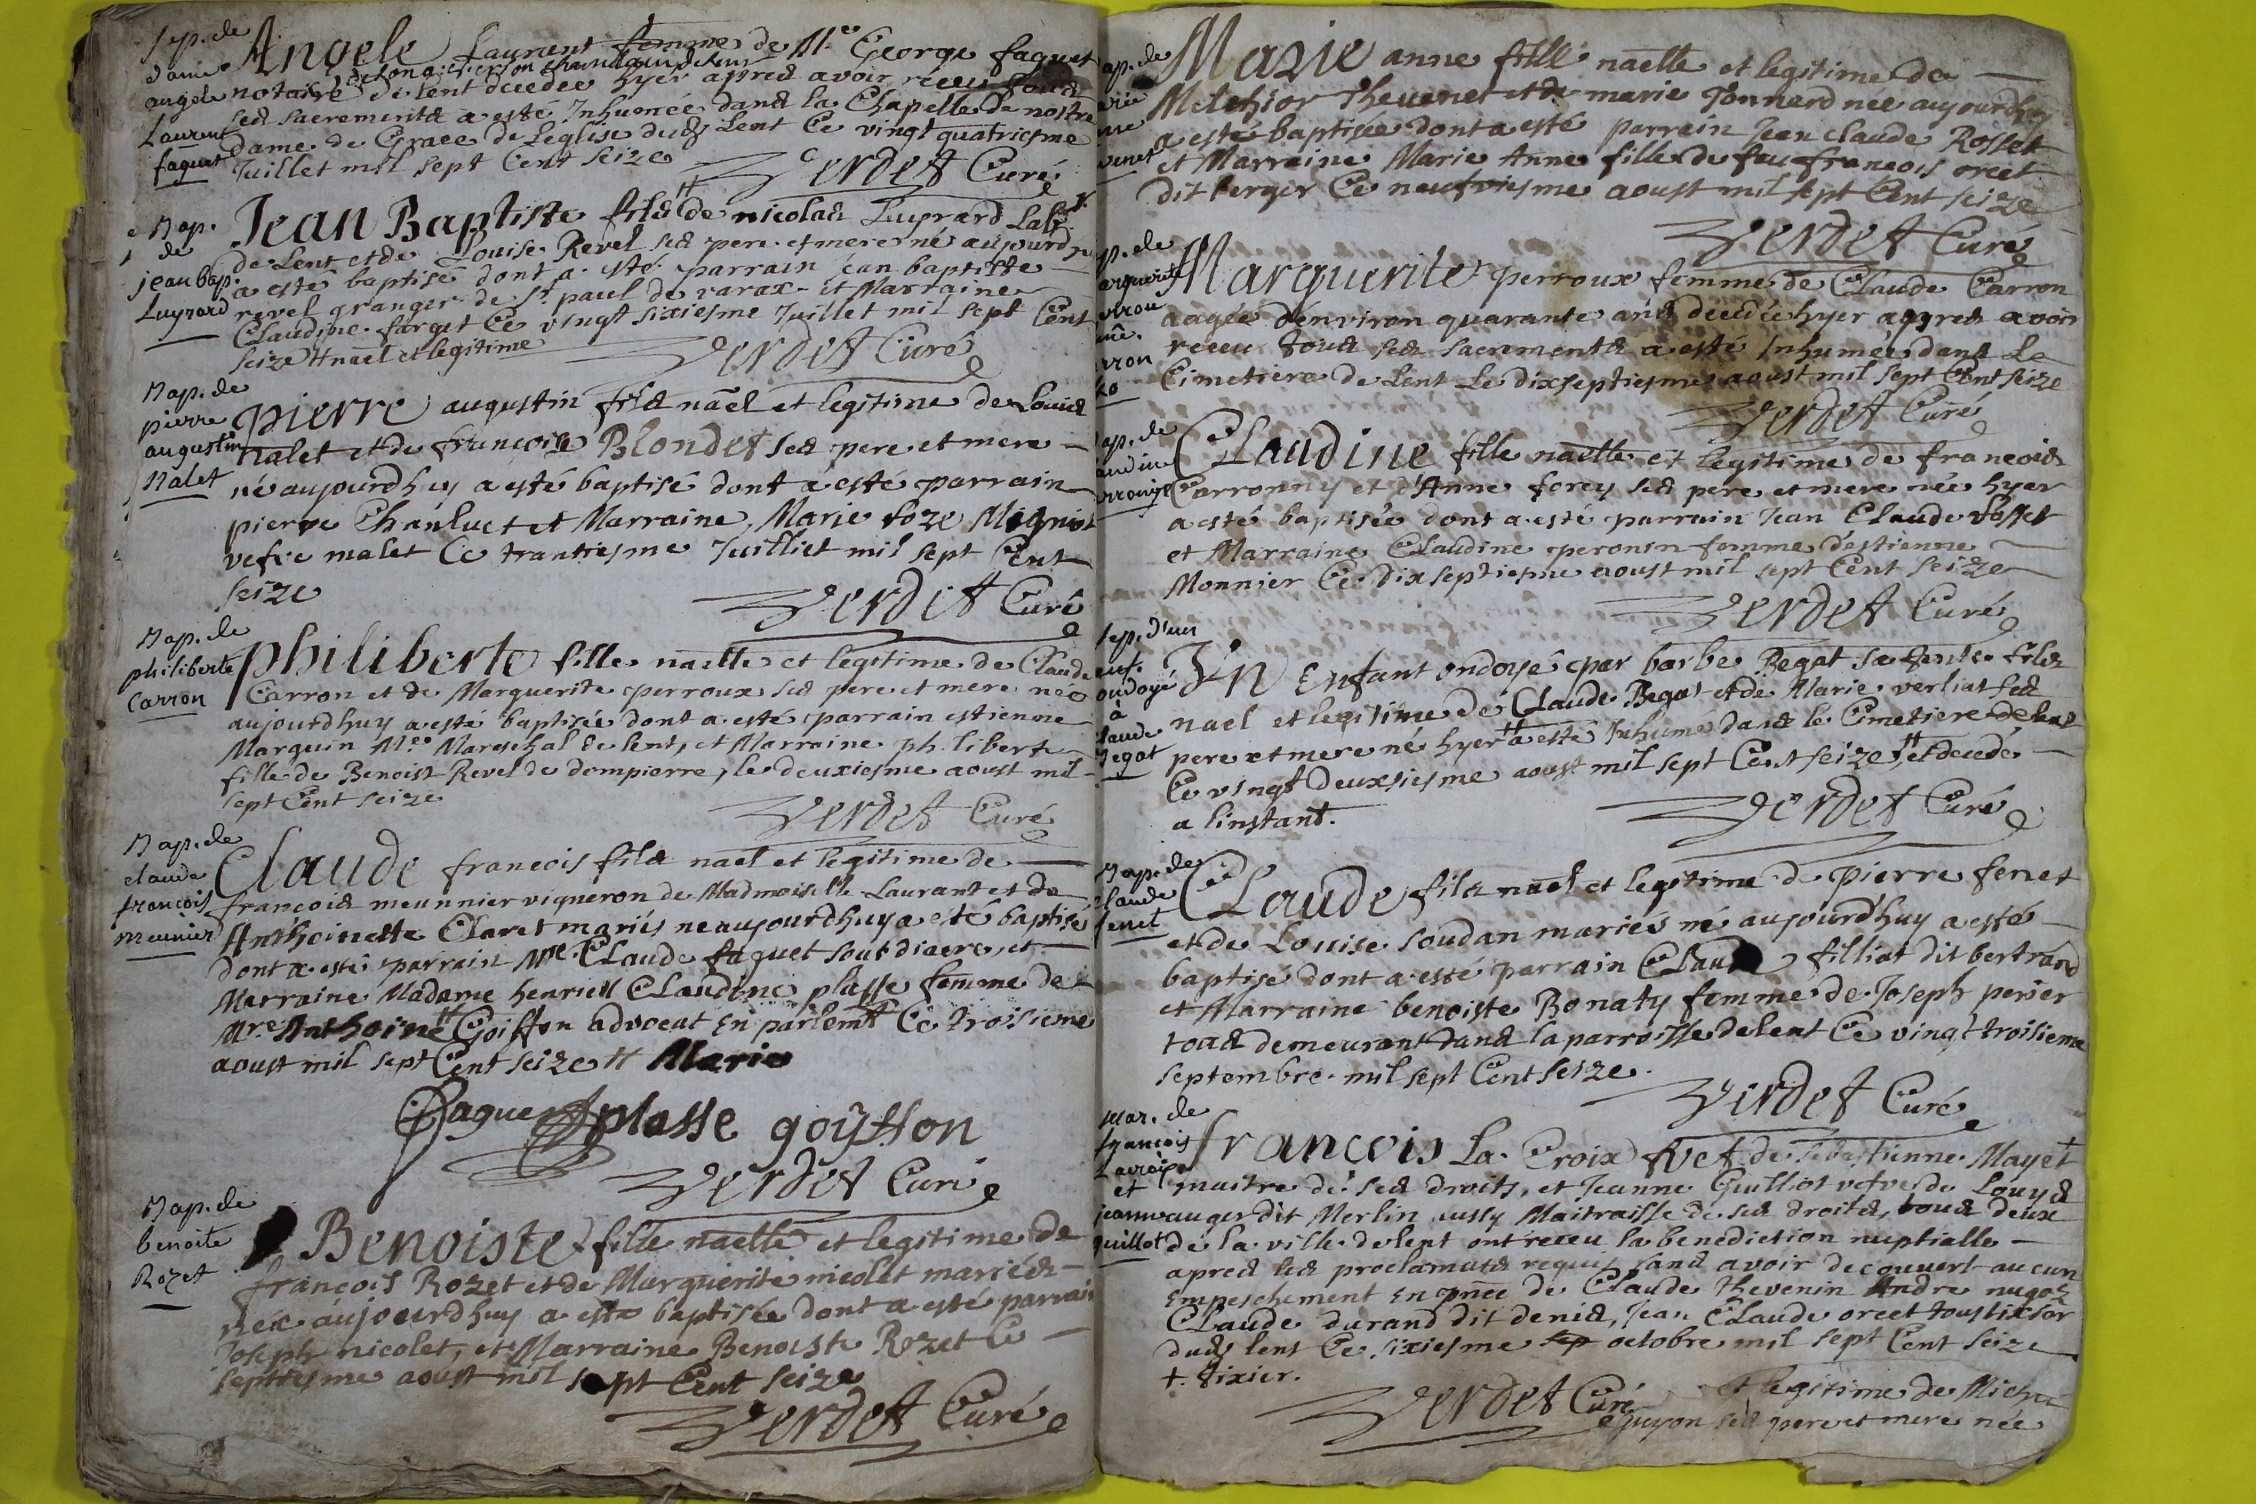 Sep. de
dame
angele
Laurent
faguet
Angele Laurent femme de Me George faguet
notaire de Lent decedee hyer apres avoir receu tous
ses sacrements a esté Inhumée dans la Chapelle de nostre
dame de Grace de Leglise dud Lent Ce vingt quatriesme
Juillet mil sept Cent seize
Verdet Curé
Bap.
de
jean bap.
Luyrard
Jean Baptiste fils # de nicolas Luyrard Labr
de Lent et de Louise Revel ses pere et mere né aujourdhuy
a esté baptisé dont a esté parrain jean baptiste
revel granger de st paul de varax et Marraine
Claudine farget Ce vingt sixiesme Juillet mil sept Cent
seize # nael et legitime
Verdet Curé
Bap. de
pierre
augustin
nalet
pierre augustin fils nael et legitime de Louis
nalet et de françoise Blondet ses pere et mere
né aujourdhuy a esté baptisé dont a esté parrain
pierre Chanluet et Marraine Marie roze Mignot
vefve malet Ce trantiesme Juilliet mil sept Cent
seize
Verdet Curé
Bap. de
philiberte
Carron
philiberte fille naelle et legitime de Claude
Carron et de Marguerite perroux ses pere et mere née
aujourdhuy a esté baptisée dont a esté parrain estienne
Marguin Me Mareschal de lent, et Marraine philiberte
fille de Benoist Revel de dompierre, le deuxiesme aoust mil
sept Cent seize
Verdet Curé
Bap. de
claude
francois
meunier
Claude francois fils nael et legitime de
francois meunnier vigneron de Madmoiselle Laurant et de
Anthoinette Claret mariés ne aujourdhuy a esté baptisé
dont a esté parrain Mre Claude faguet sousdiacre, et
Marraine Madame henriett Claudine plasse femme de
Mre Anthoine # Goiffon advocat En parlemt Ce troisieme
aoust mil sept Cent seize # Marie
Faguet plasse goÿffon
Verdet Curé
Bap. de
benoite
Rozet
Benoiste fille naelle et legitime de
francois Rozet et de Marguerite nicolet mariés
née aujourdhuy a esté baptisée dont a esté parrain
Joseph nicolet, et Marraine Benoiste Rozet Ce
septiesme aoust mil sept Cent seize
Verdet Curé
Marie anne fille naelle et legitime de
Melchior thevenet et de marie Tonnard née aujourdhuy
a esté baptisée dont a esté parrain Jean claude Rosset
et Marraine Marie Anne fille de feu francois orcet
dit berger Ce neufviesme aoust mil sept Cent seize
Verdet Curé
Marguerite perroux femme de Claude Carron
aagée d'environ quarante ans decedée hyer appres avoir
receu tous ses sacrements a esté Inhumée dans Le
Cimetiere de Lent Le dixseptiesme aoust mil sept Cent seize
Verdet Curé
Claudine fille naelle et legitime de francois
Carronny et d'Anne forey ses pere et mere née hyer
a esté baptisée dont a esté parrain Jean Claude Rosset
et Marraine Claudine peronin femme d'estienne
Monnier Ce dixseptiesme aoust mil sept Cent seize
Verdet Curé
Sep. d'un
enf.
ondoyé
à
claude
Begat
Un Enfant ondoyé par barbe Begat sa tente fils
nael et legitime de Claude Begat et de Marie verliat ses
pere et mere né hyer # a esté Inhumé dans le Cimetiere de Lent
Ce vingt deuxsiesme aoust mil sept Cent seize # et decedé
a linstant.
Verdet Curé
Bap. de
claude
fenet
Claude fils nael et legitime de pierre fenet
et de Louise soudan mariés né aujourd'huy a esté
baptisé dont a esté parrain Claude filliat dit bertrand
et Marraine benoiste Bonaty femme de Joseph perier
tous demeurant dans la parroisse de lent Ce vingt troisieme
septembre mil sept Cent seize.
Verdet Curé
Mar. de
francois
Lacroix
et
jeanne
guillot
francois La Croix vef de Sebastienne Mayet
maitre de ses droits, et Jeanne Guillot vefve de Louys
auger dit Merlin aussy Maitraisse de ses droits, tous deux
de la ville de lent ont receu la benediction nuptialle
apres les proclamats requis sans avoir decouvert aucun
Empeschement En pnce de Claude thevenin Andre nugoz
Claude durand dit denis, Jean Claude orcet tous tixsor
dud lent Ce sixiesme sep octobre mil sept Cent seize
+. tixier.
Verdet Curé
et legitime de Michel
Guyon ses pere et mere née